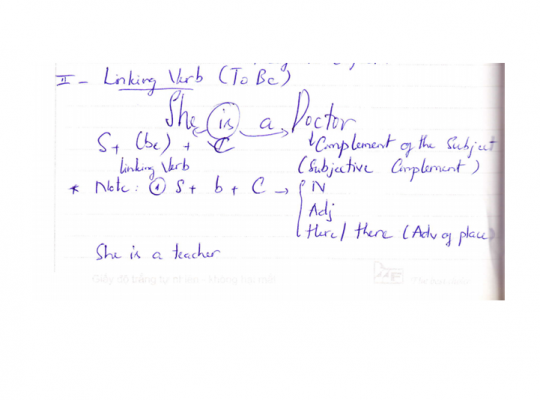 II - Linking Verb (To Be)
She is a Doctor
S + (be) + C
Linking Verb
Complement of the Subject
(Subjective Complement)
* Note: ① S + b + C → { N
Adj
Here / there (Adv of place)
She is a teacher